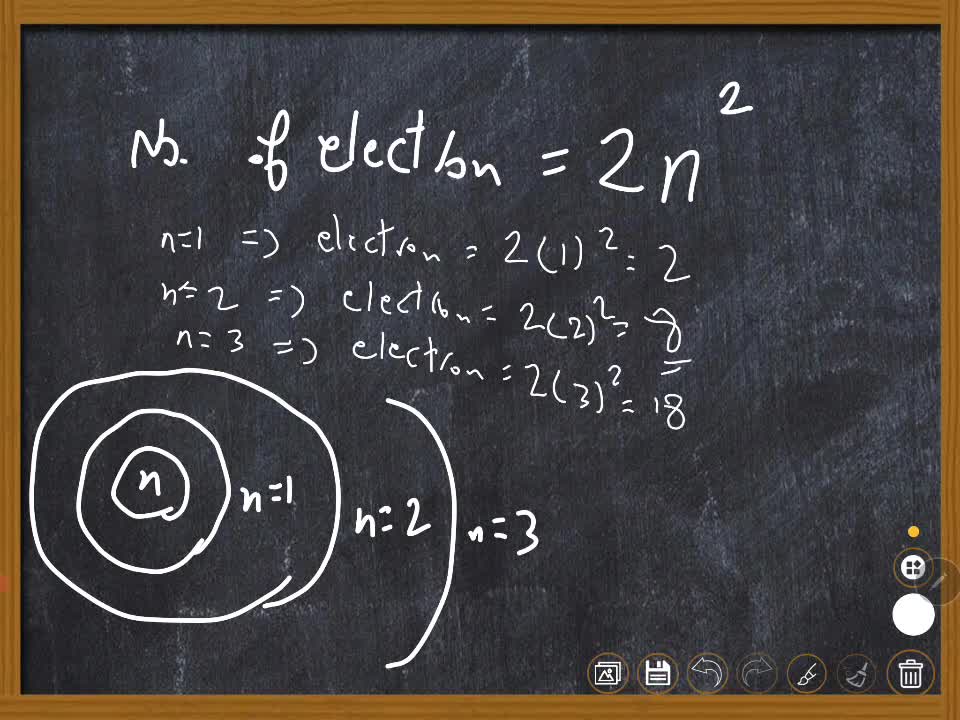 No. of electron = 2n²
n=1 => electron = 2(1)² = 2
n=2 => electron = 2(2)² = 8
n=3 => electron = 2(3)² = 18
n
n=1
n=2
n=3